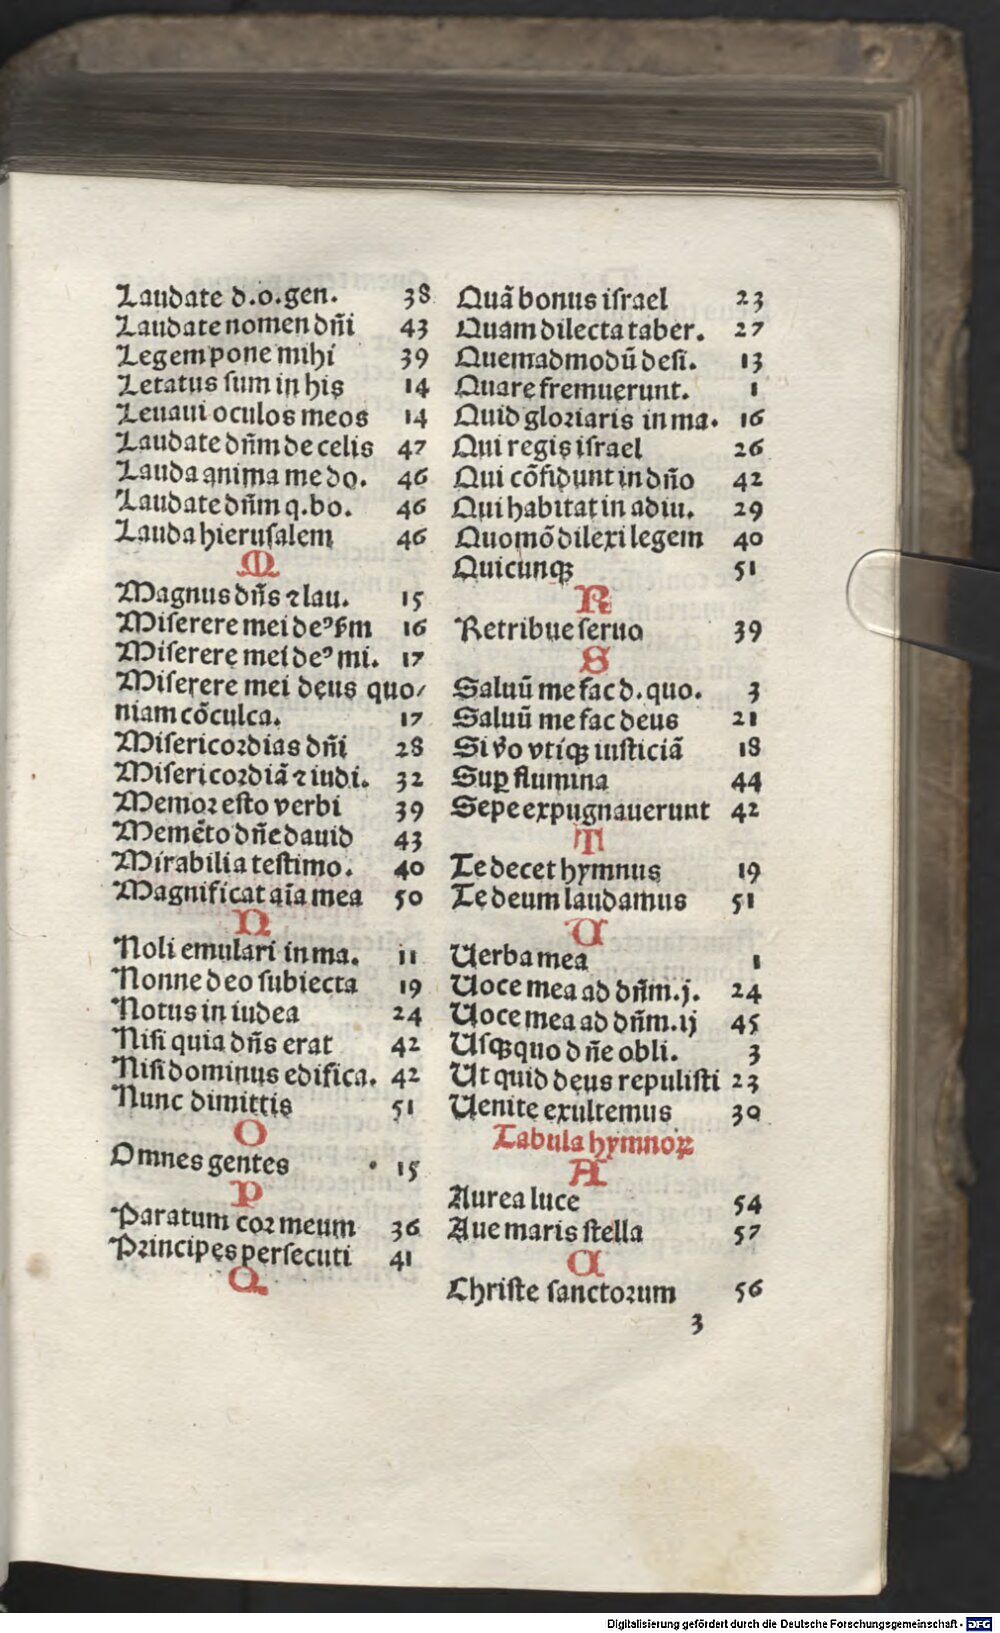 Laudate d.o.gen. 38
Laudate nomen dñi 43
Legem pone mihi 39
Letatus sum in his 14
Leuaui oculos meos 14
Laudate dñm de celis 47
Lauda anima me do. 46
Laudate dñm q.bo. 46
Lauda hierusalem 46
M
Magnus dñs ⁊ lau. 15
Miserere mei deꝰ ẜm 16
Miserere mei deꝰ mi. 17
Miserere mei deus quo/
niam cõculca. 17
Misericordias dñi 28
Misericordiã ⁊ iudi. 32
Memor esto verbi 39
Memẽto dñe dauid 43
Mirabilia testimo. 40
Magnificat aĩa mea 50
N
Noli emulari in ma. 11
Nonne deo subiecta 19
Notus in iudea 24
Nisi quia dñs erat 42
Nisi dominus edifica. 42
Nunc dimittis 51
O
Omnes gentes 15
P
Paratum cor meum 36
Principes persecuti 41
Q
Quã bonus israel 23
Quam dilecta taber. 27
Quemadmodũ desi. 13
Quare fremuerunt. 1
Quid gloriaris in ma. 16
Qui regis israel 26
Qui cõfidunt in dño 42
Qui habitat in adiu. 29
Quomõ dilexi legem 40
Quicunqꝫ 51
R
Retribue seruo 39
S
Saluũ me fac d. quo. 3
Saluũ me fac deus 21
Si v̾o vtiqꝫ iusticiã 18
Suꝑ flumina 44
Sepe expugnauerunt 42
T
Te decet hymnus 19
Te deum laudamus 51
U
Uerba mea 1
Uoce mea ad dñm.j. 24
Uoce mea ad dñm.ij 45
Usqꝫquo dñe obli. 3
Ut quid deus repulisti 23
Uenite exultemus 30
Tabula hymnoꝝ
A
Aurea luce 54
Aue maris stella 57
C
Christe sanctorum 56
3
Digitalisierung gefördert durch die Deutsche Forschungsgemeinschaft - DFG